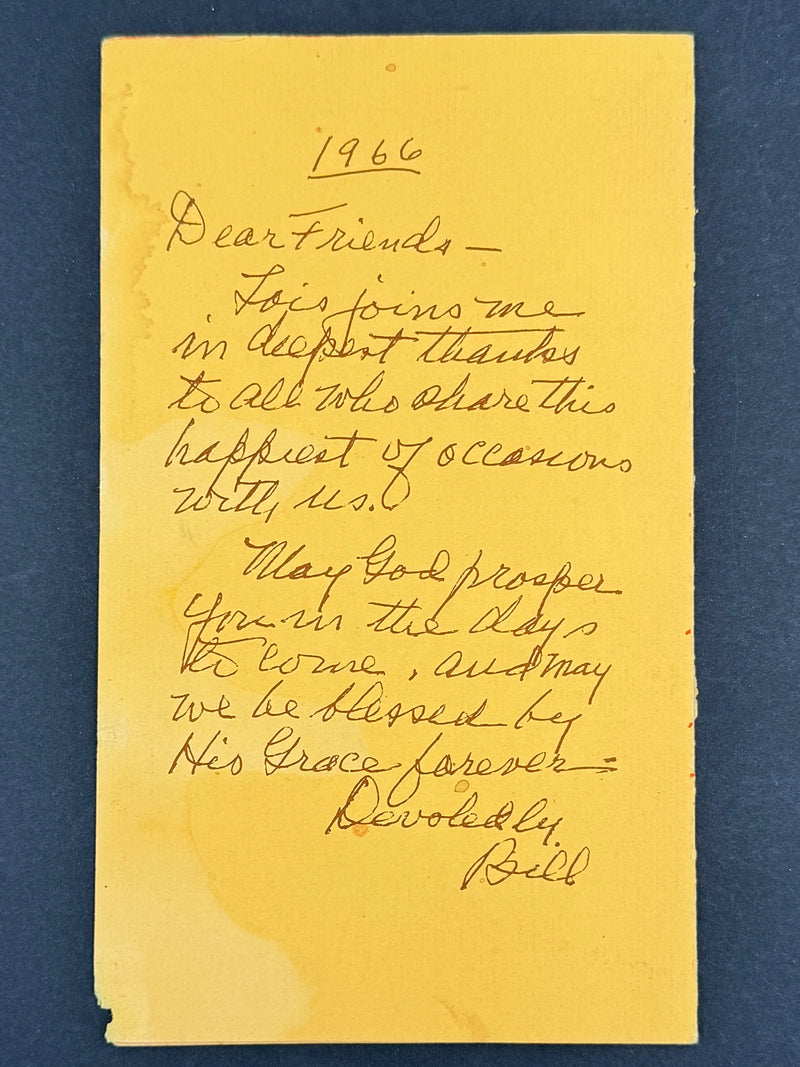 1966
Dear Friends —
Lois joins me
in deepest thanks
to all who share this
happiest of occasions
with us.
May God prosper
you in the days
to come, and may
we be blessed by
His Grace forever =
Devotedly
Bill